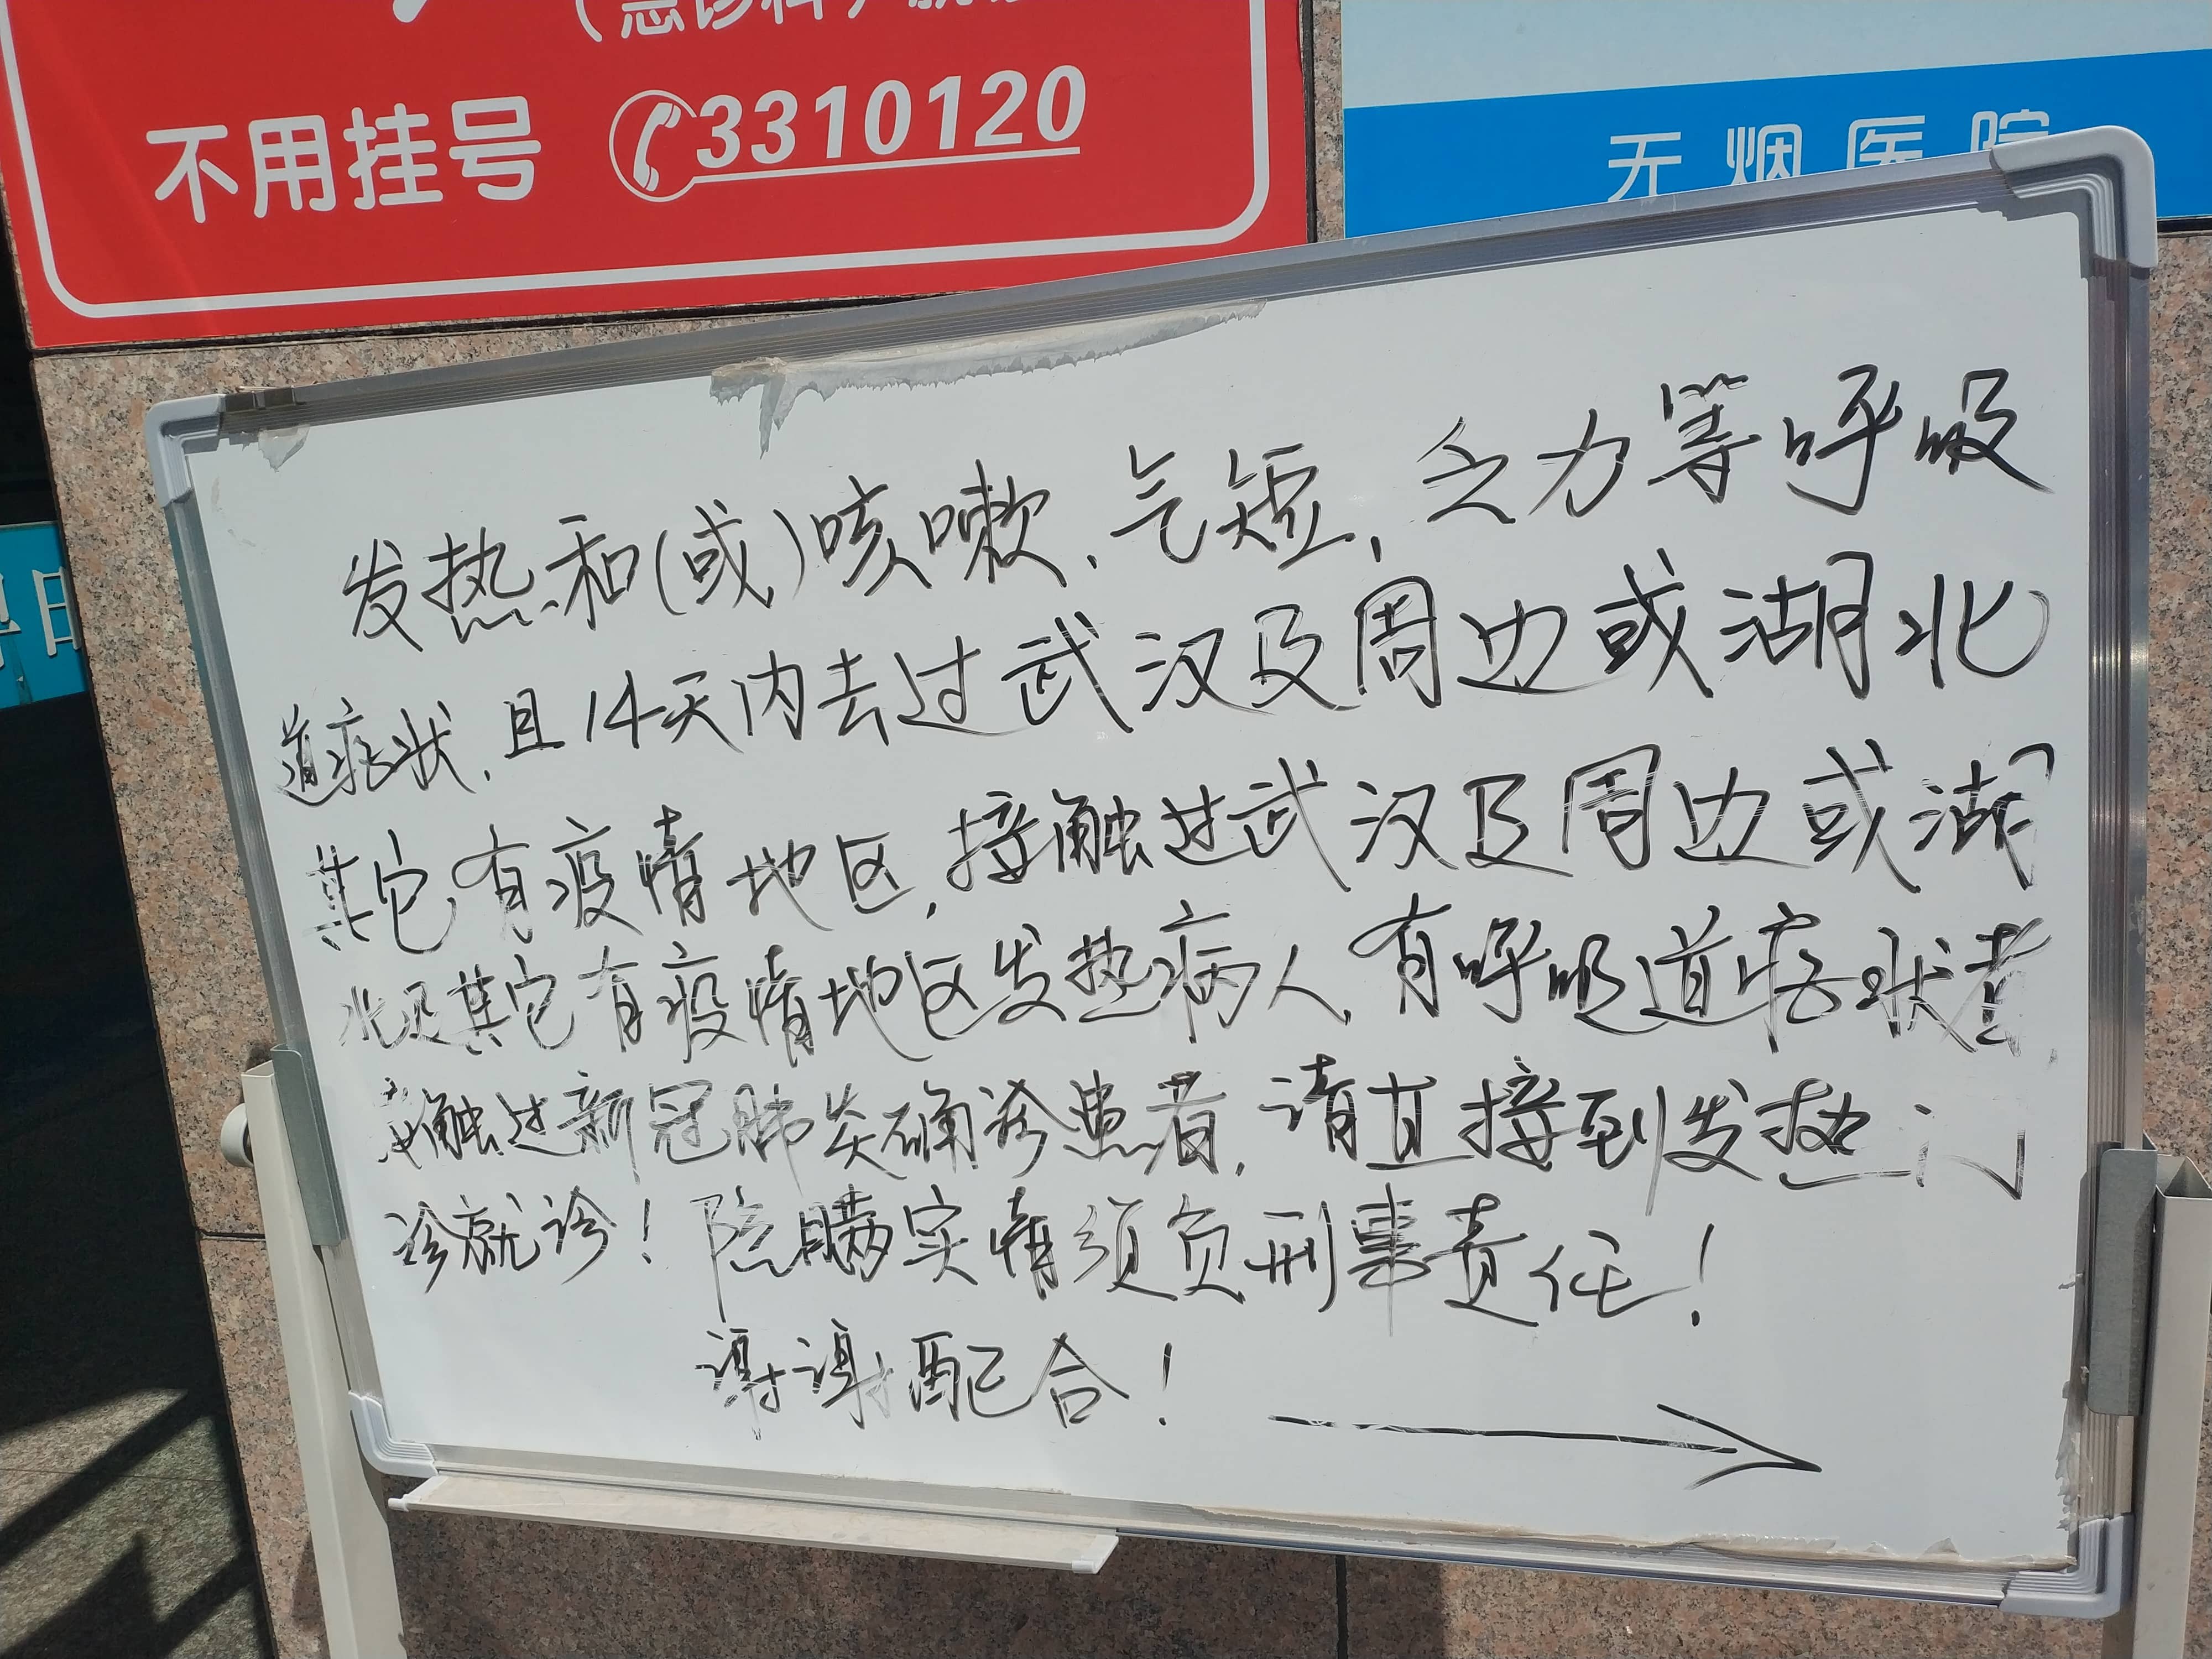 (急诊科)
不用挂号 3310120
无烟医院
发热和(或)咳嗽,气短,乏力等呼吸
道症状,且14天内去过武汉及周边或湖北
其它有疫情地区,接触过武汉及周边或湖
北及其它有疫情地区发热病人,有呼吸道症状者,
接触过新冠肺炎确诊患者,请直接到发热门
诊就诊!隐瞒实情须负刑事责任!
谢谢配合!